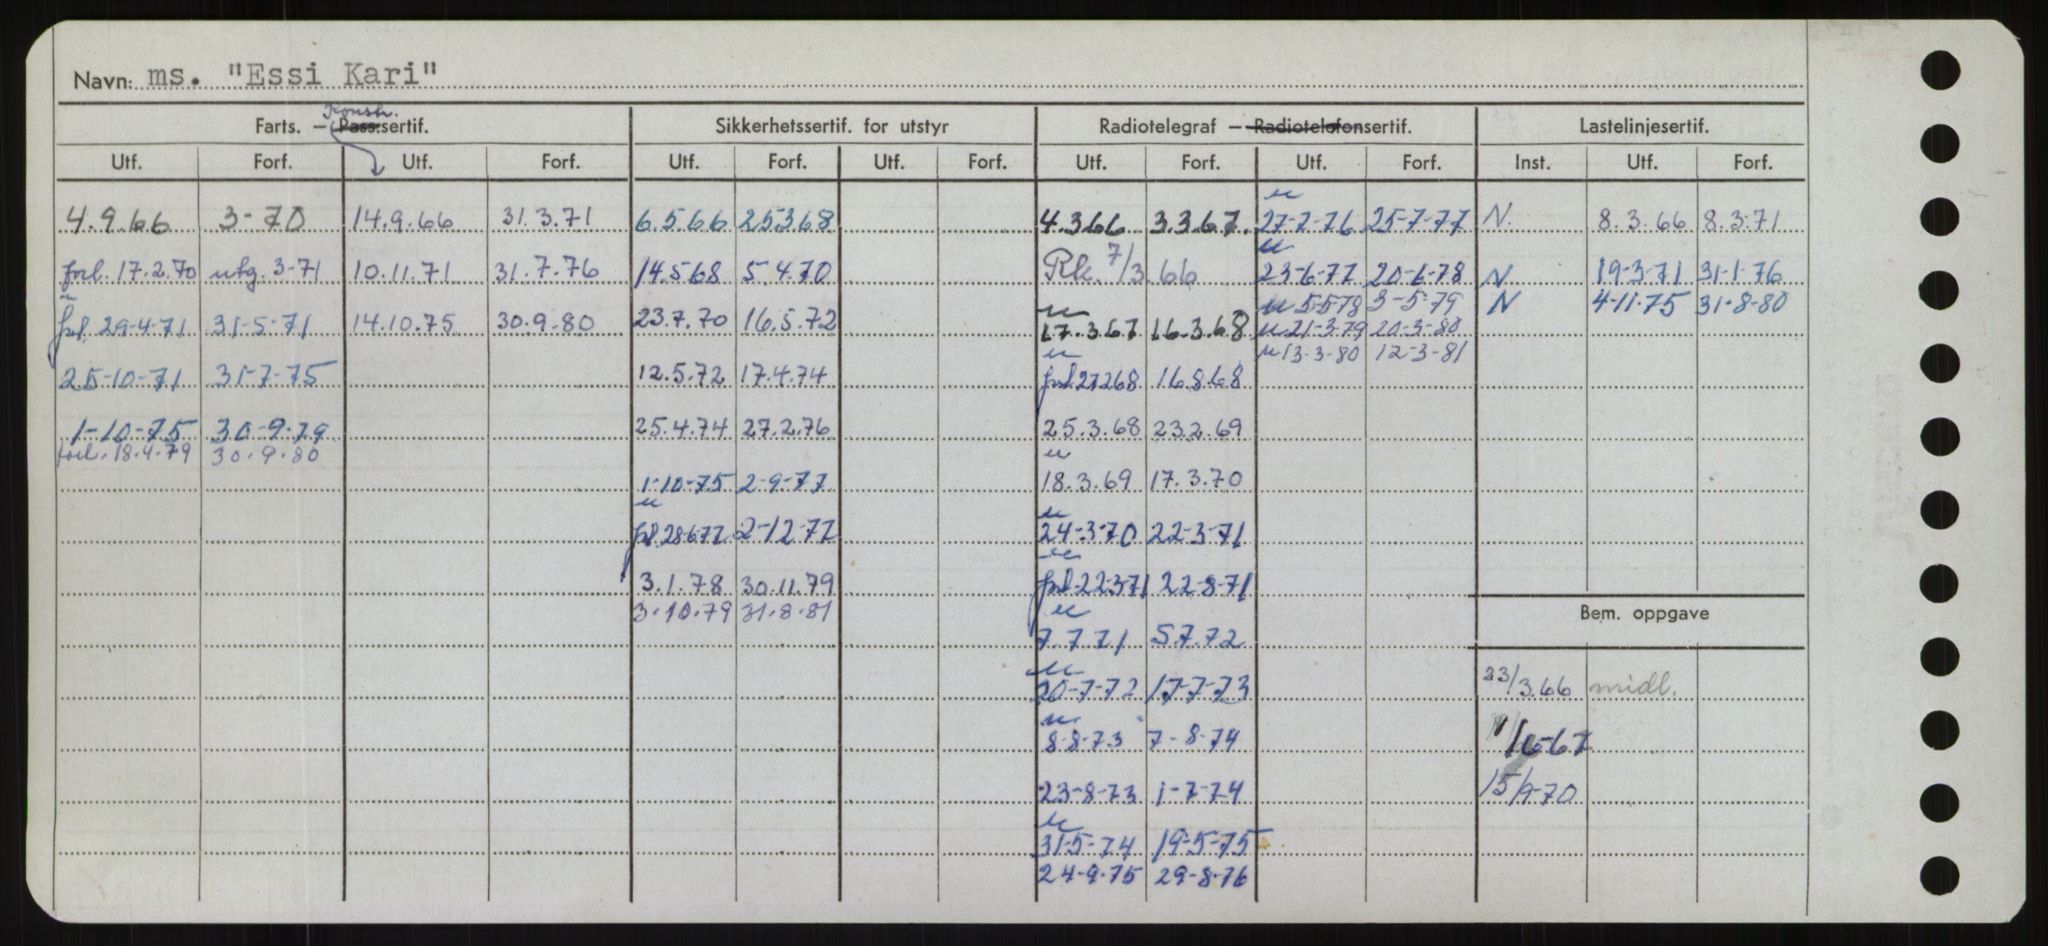 Navn: ms. "Essi Kari"
Konstr.
Farts. — Pass.sertif. Sikkerhetssertif. for utstyr Radiotelegraf — Radiotelefonsertif. Lastelinjesertif.
Utf. Forf. Utf. Forf. Utf. Forf. Utf. Forf. Utf. Forf. Utf. Forf. Inst. Utf. Forf.
4.9.66 3-70 14.9.66 31.3.71 6.5.66 25368 4.366 3.3.67. 27-7-76 25-7-77 N. 8.3.66 8.3.71
forl. 17.2.70 utg. 3-71 10.11.71 31.7.76 14.568 5.4.70 Rk. 7/3.66 23-6-77 20-6-78 N 19-3-71 31-1-76
5-578 3-5-79 N 4-11-75 31-8-80
forl. 29-4-71 31-5-71 14.10.75 30.9.80 23.7.70 16.5.72 17.3.67 16.3.68 21-3-79 20-3-80
13-3-80 12-3-81
25-10-71 31-7-75 12.5.72 17.4.74 forl 27268 16.8.68
1-10-75 30-9-79 25.4.74 27.2.76 25.3.68 23.2.69
forl. 18.4.79 30.9.80
1-10-75 2-9-77 18.3.69 17.3.70
forl. 28-6-77 2-12-77 24-3-70 22-3-71
3.1.78 30.11.79 forl. 22-3-71 22-8-71
3.10.79 31.8.81 Bem. oppgave
7.7.71 5.7.72
20-7-72 17-7-73 23/3.66 midl.
8-8-73 7-8-74 1/6-67
23-8-73 1-7-74 15/9-70
31-5-74 19-5-75
24-9-75 29-8-76